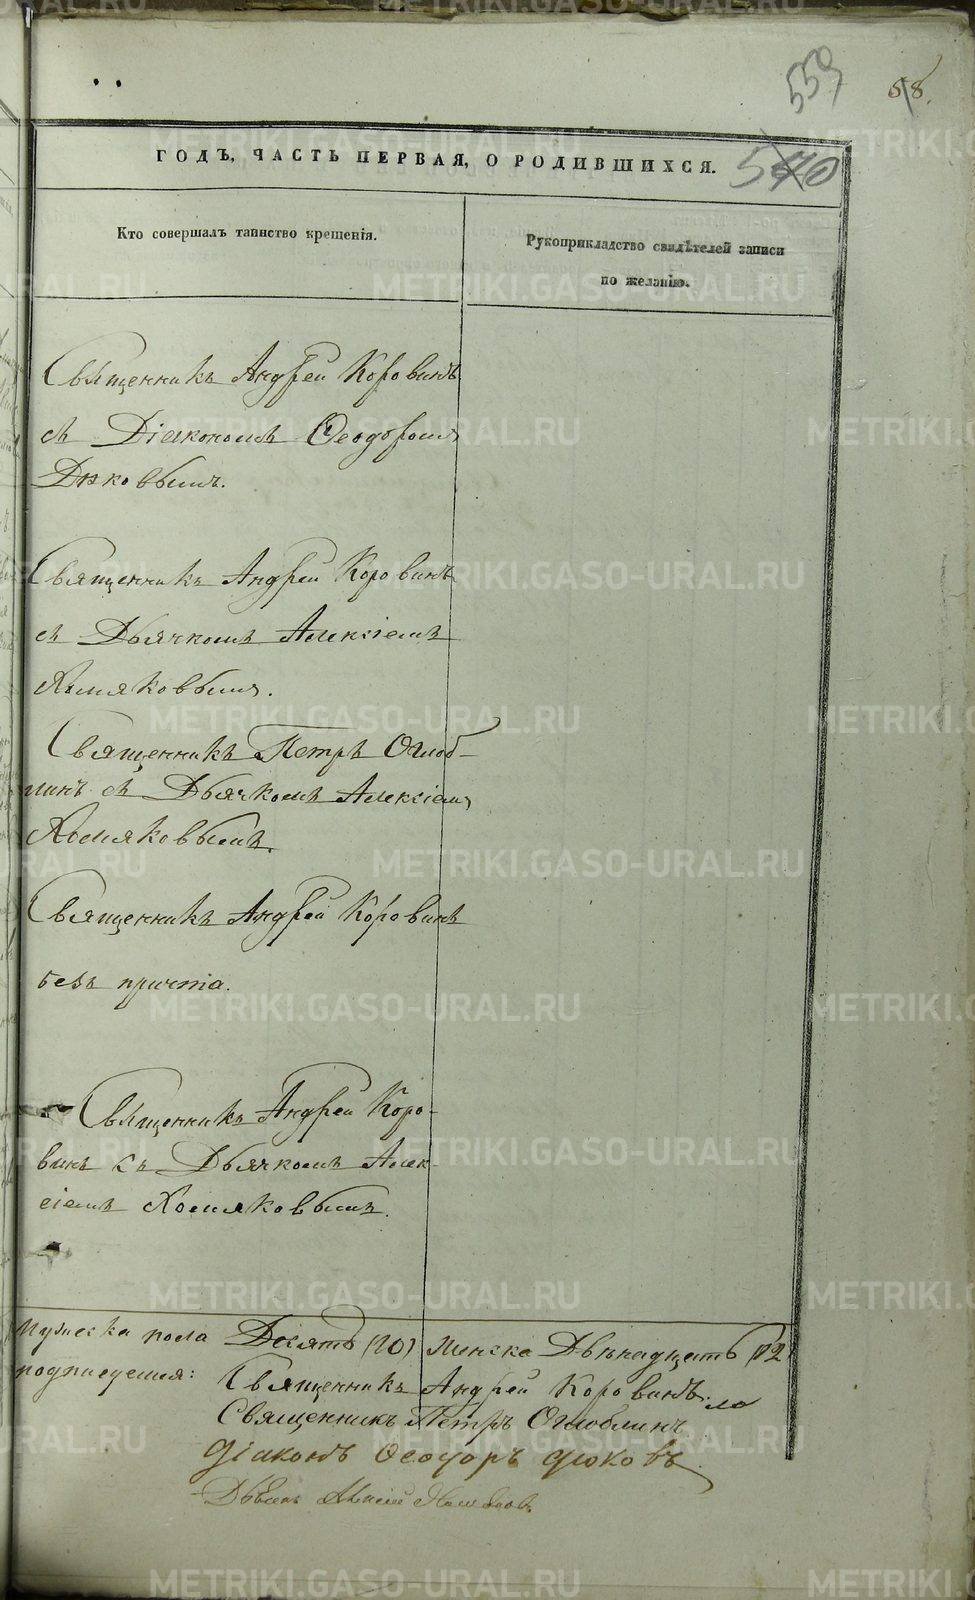 550
58.
ГОДЪ, ЧАСТЬ ПЕРВАЯ, О РОДИВШИХСЯ.
540
Кто совершалъ таинство крещенія.
Рукоприкладство свидѣтелей записи
по желанію.
Священникъ Андрей Коровинъ
съ Діакономъ Ѳеодоромъ
Дюковымъ.
Священникъ Андрей Коровинъ
съ Дьячкомъ Алексіемъ
Хомяковымъ.
Священникъ Петръ Оглоб-
линъ съ Дьячкомъ Алексіемъ
Хомяковымъ.
Священникъ Андрей Коровинъ
безъ причта.
Священникъ Андрей Коро-
винъ съ Дьячкомъ Алек-
сіемъ Хомяковымъ.
Мужеска пола Десять (10) Женска Двенадцать (12)
Священникъ Андрей Коровинъ.
Священникъ Петръ Оглоблинъ
Діаконъ Ѳеодоръ Дюковъ
METRIKI.GASO-URAL.RU